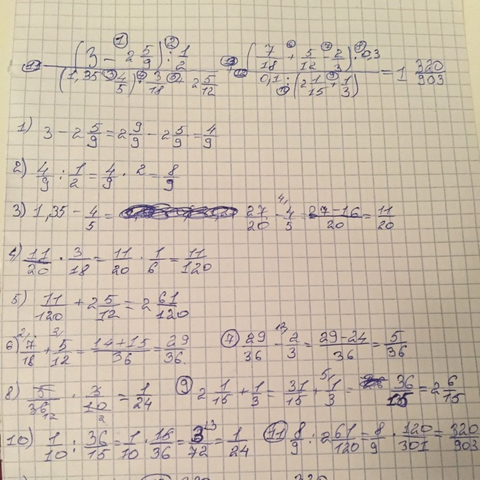 (3 - 2 5/9) : 1/2 / (1,35 - 4/5) · 3/18 + 2 5/12 + (7/18 + 5/12 - 2/3) · 0,3 / 0,1 : (2 1/15 + 1/3) = 1 320/903
1) 3 - 2 5/9 = 2 9/9 - 2 5/9 = 4/9
2) 4/9 : 1/2 = 4/9 · 2 = 8/9
3) 1,35 - 4/5 = 27/20 - 4/5 = 27-16/20 = 11/20
4) 11/20 · 3/18 = 11/20 · 1/6 = 11/120
5) 11/120 + 2 5/12 = 2 61/120
6) 7/18 + 5/12 = 14+15/36 = 29/36 7) 29/36 - 2/3 = 29-24/36 = 5/36
8) 5/36 · 3/10 = 1/24 9) 2 1/15 + 1/3 = 31/15 + 1/3 = 36/15 = 2 6/15
10) 1/10 : 36/15 = 1/10 · 15/36 = 3/72 = 1/24 11) 8/9 : 2 61/120 = 8/9 · 120/301 = 320/903